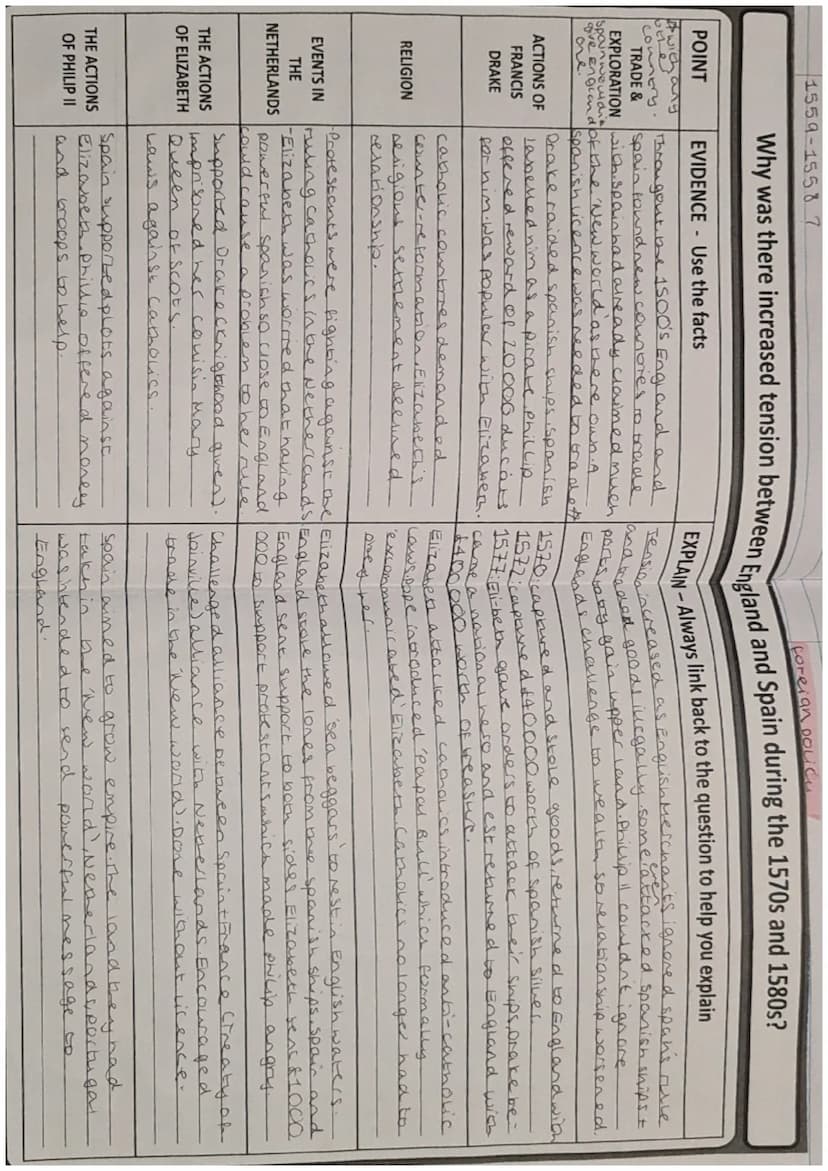 1559-1558 ?
foreign policy
Why was there increased tension between England and Spain during the 1570s and 1580s?
POINT
EVIDENCE - Use the facts
EXPLAIN – Always link back to the question to help you explain
* with any
other
country.
Spain would
give England
one.
TRADE &
EXPLORATION
Througout the 1500's England and
Spain found new countries to trade
with. Spain had already claimed much
of the 'New world' as there own. A
Spanish licence was needed to trade *
Tension increased as English merchants ignored spah's rule
and traded goods iurgally. some even attacked spanish ships +
ports to try gain upper land. Phillip II couldn't ignore
England's challenge to wealth so relationship worsened.
ACTIONS OF
FRANCIS
DRAKE
Drake raided spanish ships, spanish
labelled him as a pirate. phillip
offered reward of 20000 ducats
for him. was popular with Elizabeth.
1570: captured and stole goods, returned to England with
1572: captured £40000 worth of spanish silver.
1577: Eli-beth gave orders to attack their ships, Drake be-
came a national hero and est returned to England with
£400000 worth of treasure.
RELIGION
Catholic countries demanded
counter-reformation. Elizabeth's
religious settlement deemed
relationship.
Elizabeth attacked catholics, introduced anti-catholic
laws. Pope introduced 'Papal Bull' which formally
'excommunicated' Elizabeth. Catholics no longer had to
obey her.
EVENTS IN
THE
NETHERLANDS
-Protestants were fighting against the
ruling catholics in the Netherlands
-Elizabeth was worried that having
powerful spanish so close to England
could cause a problem to her rule
Elizabeth allowed 'sea beggars' to rest in English waters.
England stole the lones from the spanish ships. Spain and
England sent support to both sides Elizabeth sent £1000
000 to support protestants which made philip angry
THE ACTIONS
OF ELIZABETH
Supported Drake (knighthood given).
Imprisoned her cousin Mary
Queen of Scots.
Laws against Catholics.
Challenged alliance between Spain + France (treaty of
Joinville) alliance with Netherlands. Encouraged
trade in the 'New world'. Done without licence.
THE ACTIONS
OF PHILIP II
Spain supported plots against
Elizabeth, Phillip offered money
and troops to help.
Spain aimed to grow empire. The land they had
taken in the 'New world', Netherlands, portugal
was intended to send powerful message to
England.